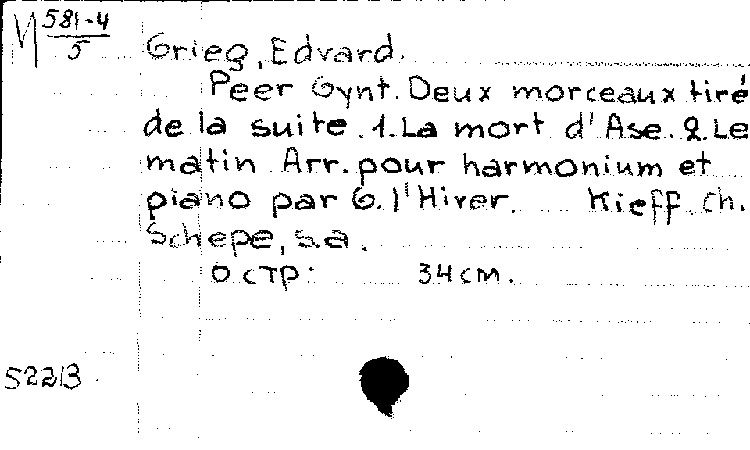 M 581-4
5
Grieg, Edvard.
Peer Gynt. Deux morceaux tiré
de la suite. 1. La mort d'Ase. 2. Le
matin. Arr. pour harmonium et
piano par G. l'Hiver. Kieff. Ch.
Schepe, s.a.
0 стр: 34 см.
52213